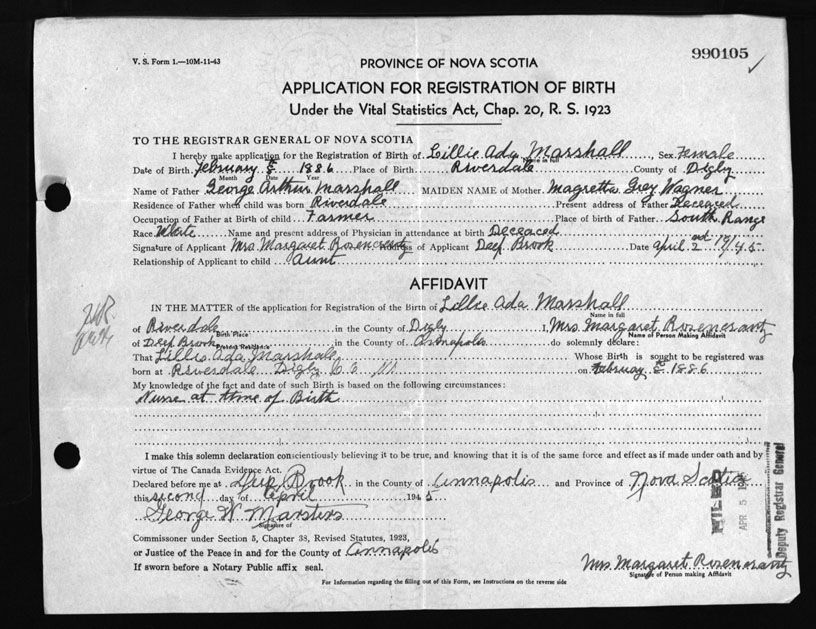 V. S. Form 1.—10M-11-43
990105
PROVINCE OF NOVA SCOTIA
APPLICATION FOR REGISTRATION OF BIRTH
Under the Vital Statistics Act, Chap. 20, R. S. 1923
TO THE REGISTRAR GENERAL OF NOVA SCOTIA
I hereby make application for the Registration of Birth of Lillie Ada Marshall, Sex Female
Name in full
Date of Birth February 8 1886 Place of Birth Riverdale County of Digby
Month Date Year
Name of Father George Arthur Marshall MAIDEN NAME of Mother Magretta Grey Wagner
Residence of Father when child was born Riverdale Present address of Father Deceased
Occupation of Father at Birth of child Farmer Place of birth of Father South Range
Race White Name and present address of Physician in attendance at birth Deceased
Signature of Applicant Mrs Margaret Rosencrantz Address of Applicant Deep Brook Date April 2nd 1945
Relationship of Applicant to child Aunt
AFFIDAVIT
IN THE MATTER of the application for Registration of the Birth of Lillie Ada Marshall
Name in full
of Riverdale in the County of Digby I, Mrs Margaret Rosencrantz
Birth Place Name of Person Making Affidavit
of Deep Brook in the County of Annapolis do solemnly declare:
Present Residence
That Lillie Ada Marshall Whose Birth is sought to be registered was
born at Riverdale Digby Co on February 8 1886
My knowledge of the fact and date of such Birth is based on the following circumstances:
Nurse at time of Birth
I make this solemn declaration conscientiously believing it to be true, and knowing that it is of the same force and effect as if made under oath and by
virtue of The Canada Evidence Act.
Declared before me at Deep Brook in the County of Annapolis and Province of Nova Scotia
this second day of April 1945
George W Marsters
Signature of
Commissioner under Section 5, Chapter 38, Revised Statutes, 1923,
or Justice of the Peace in and for the County of Annapolis
If sworn before a Notary Public affix seal.
FILED
APR 5 1945
Deputy Registrar General
Mrs. Margaret Rosencrantz
Signature of Person making Affidavit
For Information regarding the filling out of this Form, see Instructions on the reverse side